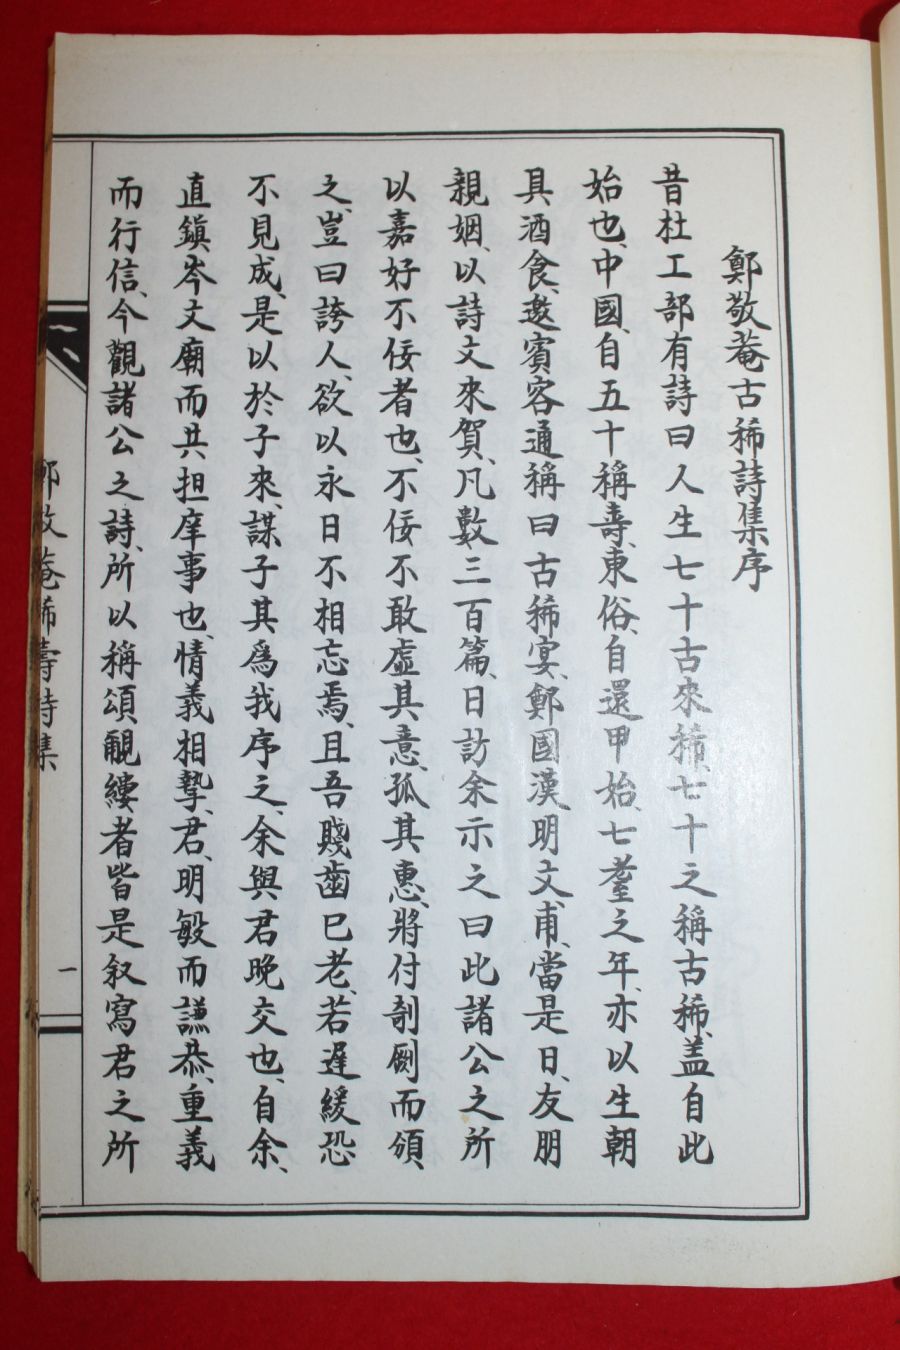 鄭敬菴古稀詩集序
昔杜工部有詩曰人生七十古來稀、七十之稱古稀、盖自此
始也、中國、自五十稱壽、東俗、自還甲始、七耋之年、亦以生朝
具酒食、邀賓客、通稱曰古稀宴、鄭國漢、明文甫、當是日、友朋
親姻、以詩文來賀、凡數三百篇、日訪余示之曰此諸公之所
以嘉好不佞者也、不佞不敢虛其意、孤其惠、將付剞劂而頒
之、豈曰誇人、欲以永日不相忘焉、且吾賤齒已老、若遲緩恐
不見成、是以於子來、謀子其爲我序之、余與君晩交也、自余、
直鎭岑文廟而共、担庠事也、情義相摯、君、明毅而謙恭、重義
而行信、今觀諸公之詩、所以稱頌覼縷者皆是叙寫君之所
鄭敬菴稀壽詩集
一